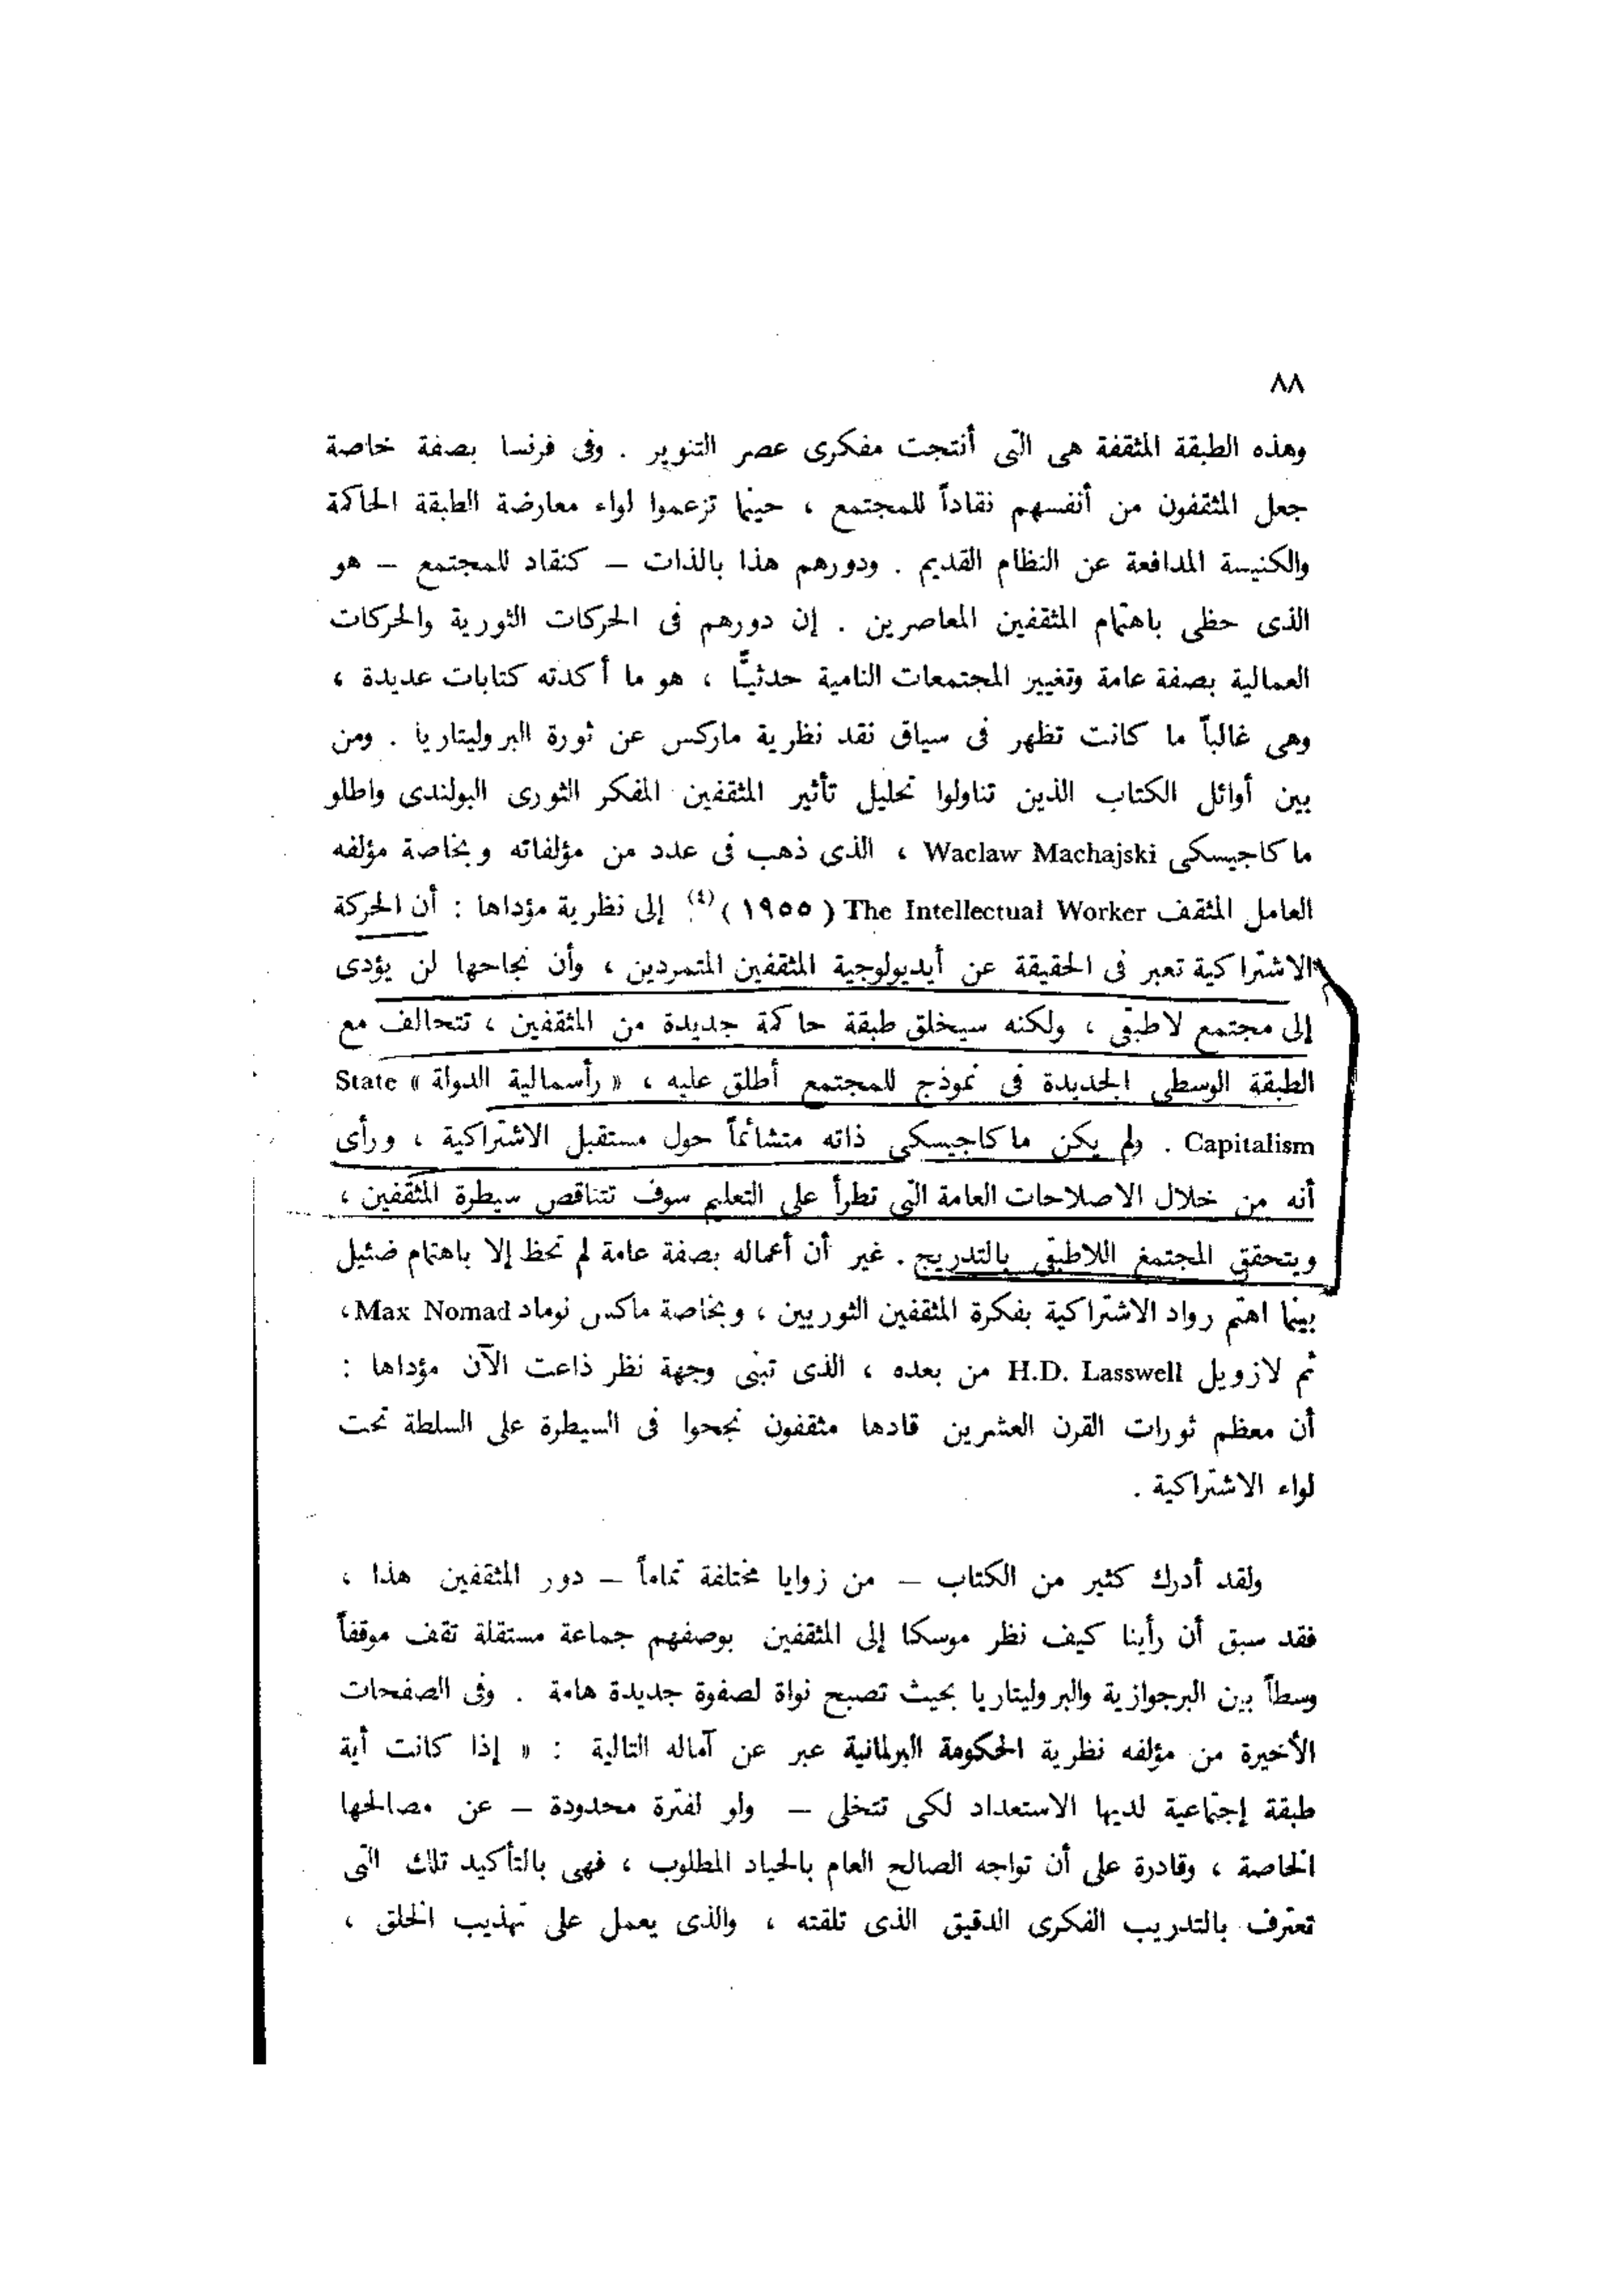 ٨٨
وهذه الطبقة المثقفة هى التى أنتجت مفكرى عصر التنوير . وفى فرنسا بصفة خاصة
جعل المثقفون من أنفسهم نقاداً للمجتمع ، حينما تزعموا لواء معارضة الطبقة الحاكمة
والكنيسة المدافعة عن النظام القديم . ودورهم هذا بالذات – كنقاد للمجتمع – هو
الذى حظى باهتمام المثقفين المعاصرين . إن دورهم فى الحركات الثورية والحركات
العمالية بصفة عامة وتغيير المجتمعات النامية حدثيًّا ، هو ما أكدته كتابات عديدة ،
وهى غالباً ما كانت تظهر فى سياق نقد نظرية ماركس عن ثورة البروليتاريا . ومن
بين أوائل الكتاب الذين تناولوا تحليل تأثير المثقفين المفكر الثورى البولندى واطلو
ماكاجيسكى Waclaw Machajski ، الذى ذهب فى عدد من مؤلفاته وبخاصة مؤلفه
العامل المثقف The Intellectual Worker ( ١٩٥٥ )(٤) إلى نظرية مؤداها : أن الحركة
الاشتراكية تعبر فى الحقيقة عن أيديولوجية المثقفين المتمردين ، وأن نجاحها لن يؤدى
إلى مجتمع لاطبقى ، ولكنه سيخلق طبقة حاكمة جديدة من المثقفين ، تتحالف مع
الطبقة الوسطى الجديدة فى نموذج للمجتمع أطلق عليه ، « رأسمالية الدولة » State
Capitalism . ولم يكن ماكاجيسكى ذاته متشائماً حول مستقبل الاشتراكية ، ورأى
أنه من خلال الاصلاحات العامة التى تطرأ على التعليم سوف تتناقص سيطرة المثقفين ،
ويتحقق المجتمغ اللاطبقى بالتدريج . غير أن أعماله بصفة عامة لم تحظ إلا باهتمام ضئيل
بينما اهتم رواد الاشتراكية بفكرة المثقفين الثوريين ، وبخاصة ماكس نوماد Max Nomad ،
ثم لازويل H.D. Lasswell من بعده ، الذى تبنى وجهة نظر ذاعت الآن مؤداها :
أن معظم ثورات القرن العشرين قادها مثقفون نجحوا فى السيطرة على السلطة تحت
لواء الاشتراكية .
ولقد أدرك كثير من الكتاب – من زوايا مختلفة تماماً – دور المثقفين هذا ،
فقد سبق أن رأينا كيف نظر موسكا إلى المثقفين بوصفهم جماعة مستقلة تقف موقفاً
وسطاً بين البرجوازية والبروليتاريا بحيث تصبح نواة لصفوة جديدة هامة . وفى الصفحات
الأخيرة من مؤلفه نظرية الحكومة البرلمانية عبر عن آماله التالية : « إذا كانت أية
طبقة إجتماعية لديها الاستعداد لكى تتخلى – ولو لفترة محدودة – عن مصالحها
الخاصة ، وقادرة على أن تواجه الصالح العام بالحياد المطلوب ، فهى بالتأكيد تلك التى
تعترف بالتدريب الفكرى الدقيق الذى تلقته ، والذى يعمل على تهذيب الخلق ،